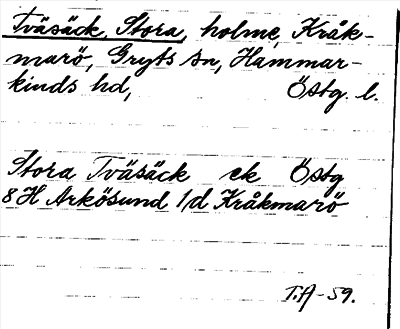 Tväsäck, Stora, holme, Kråk-
marö, Gryts sn, Hammar-
kinds hd, Östg. l.
Stora Tväsäck ek Östg
8 H Arkösund 1/d Kråkmarö
T.A-59.